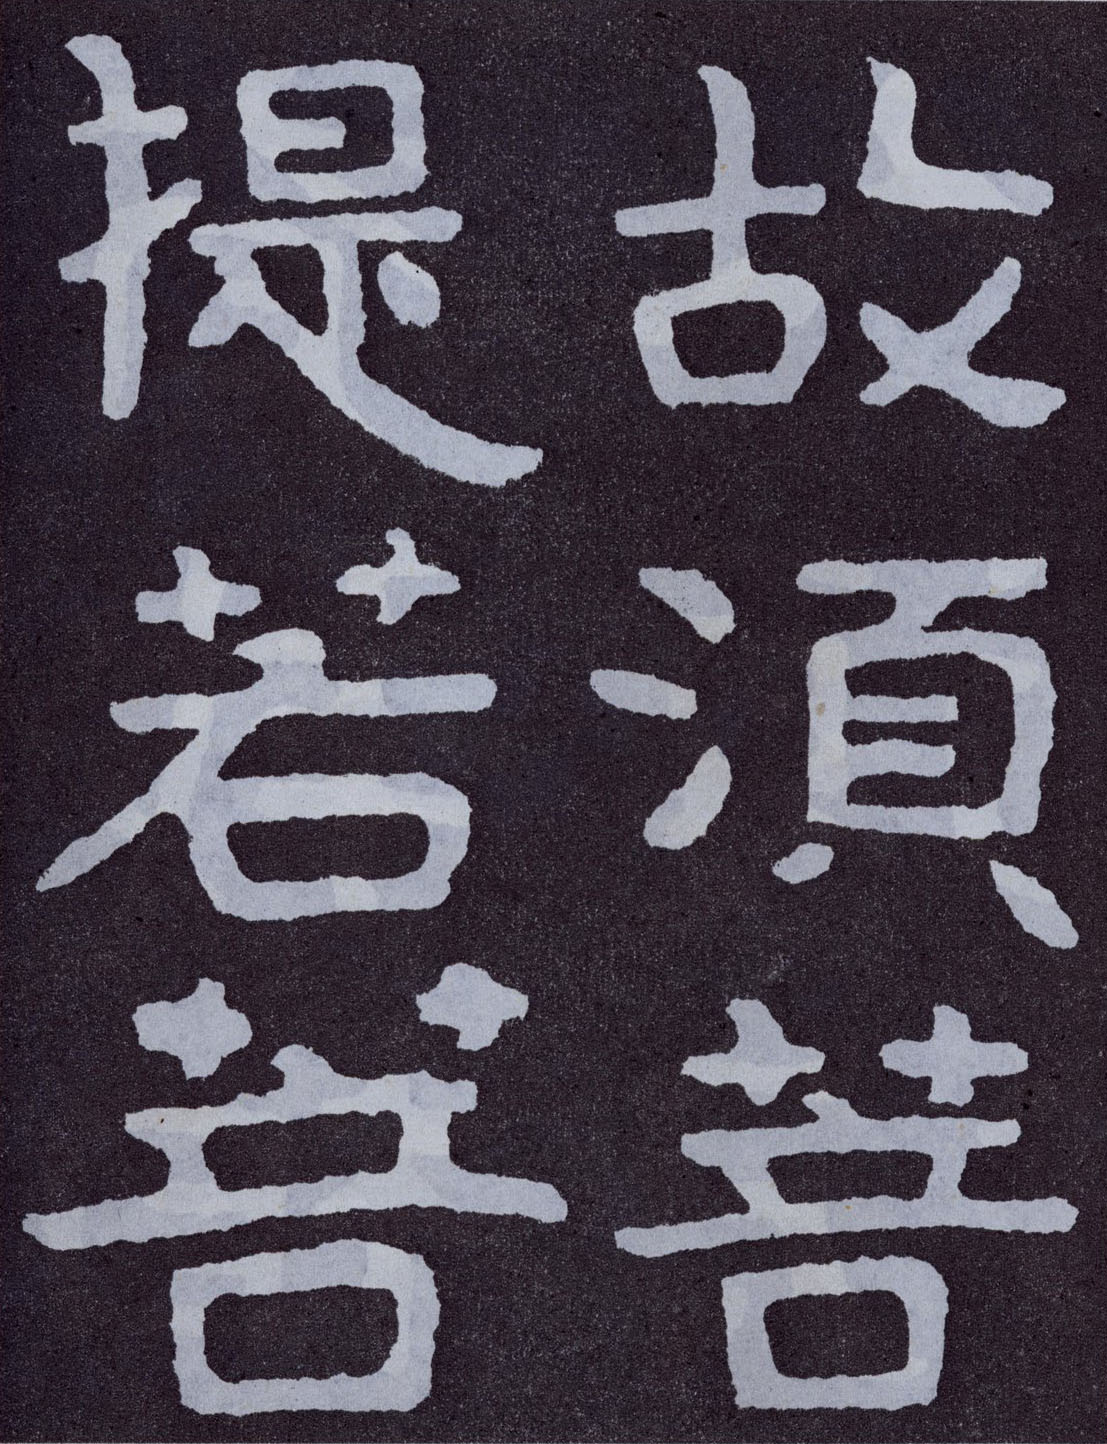 故湏菩
提若菩